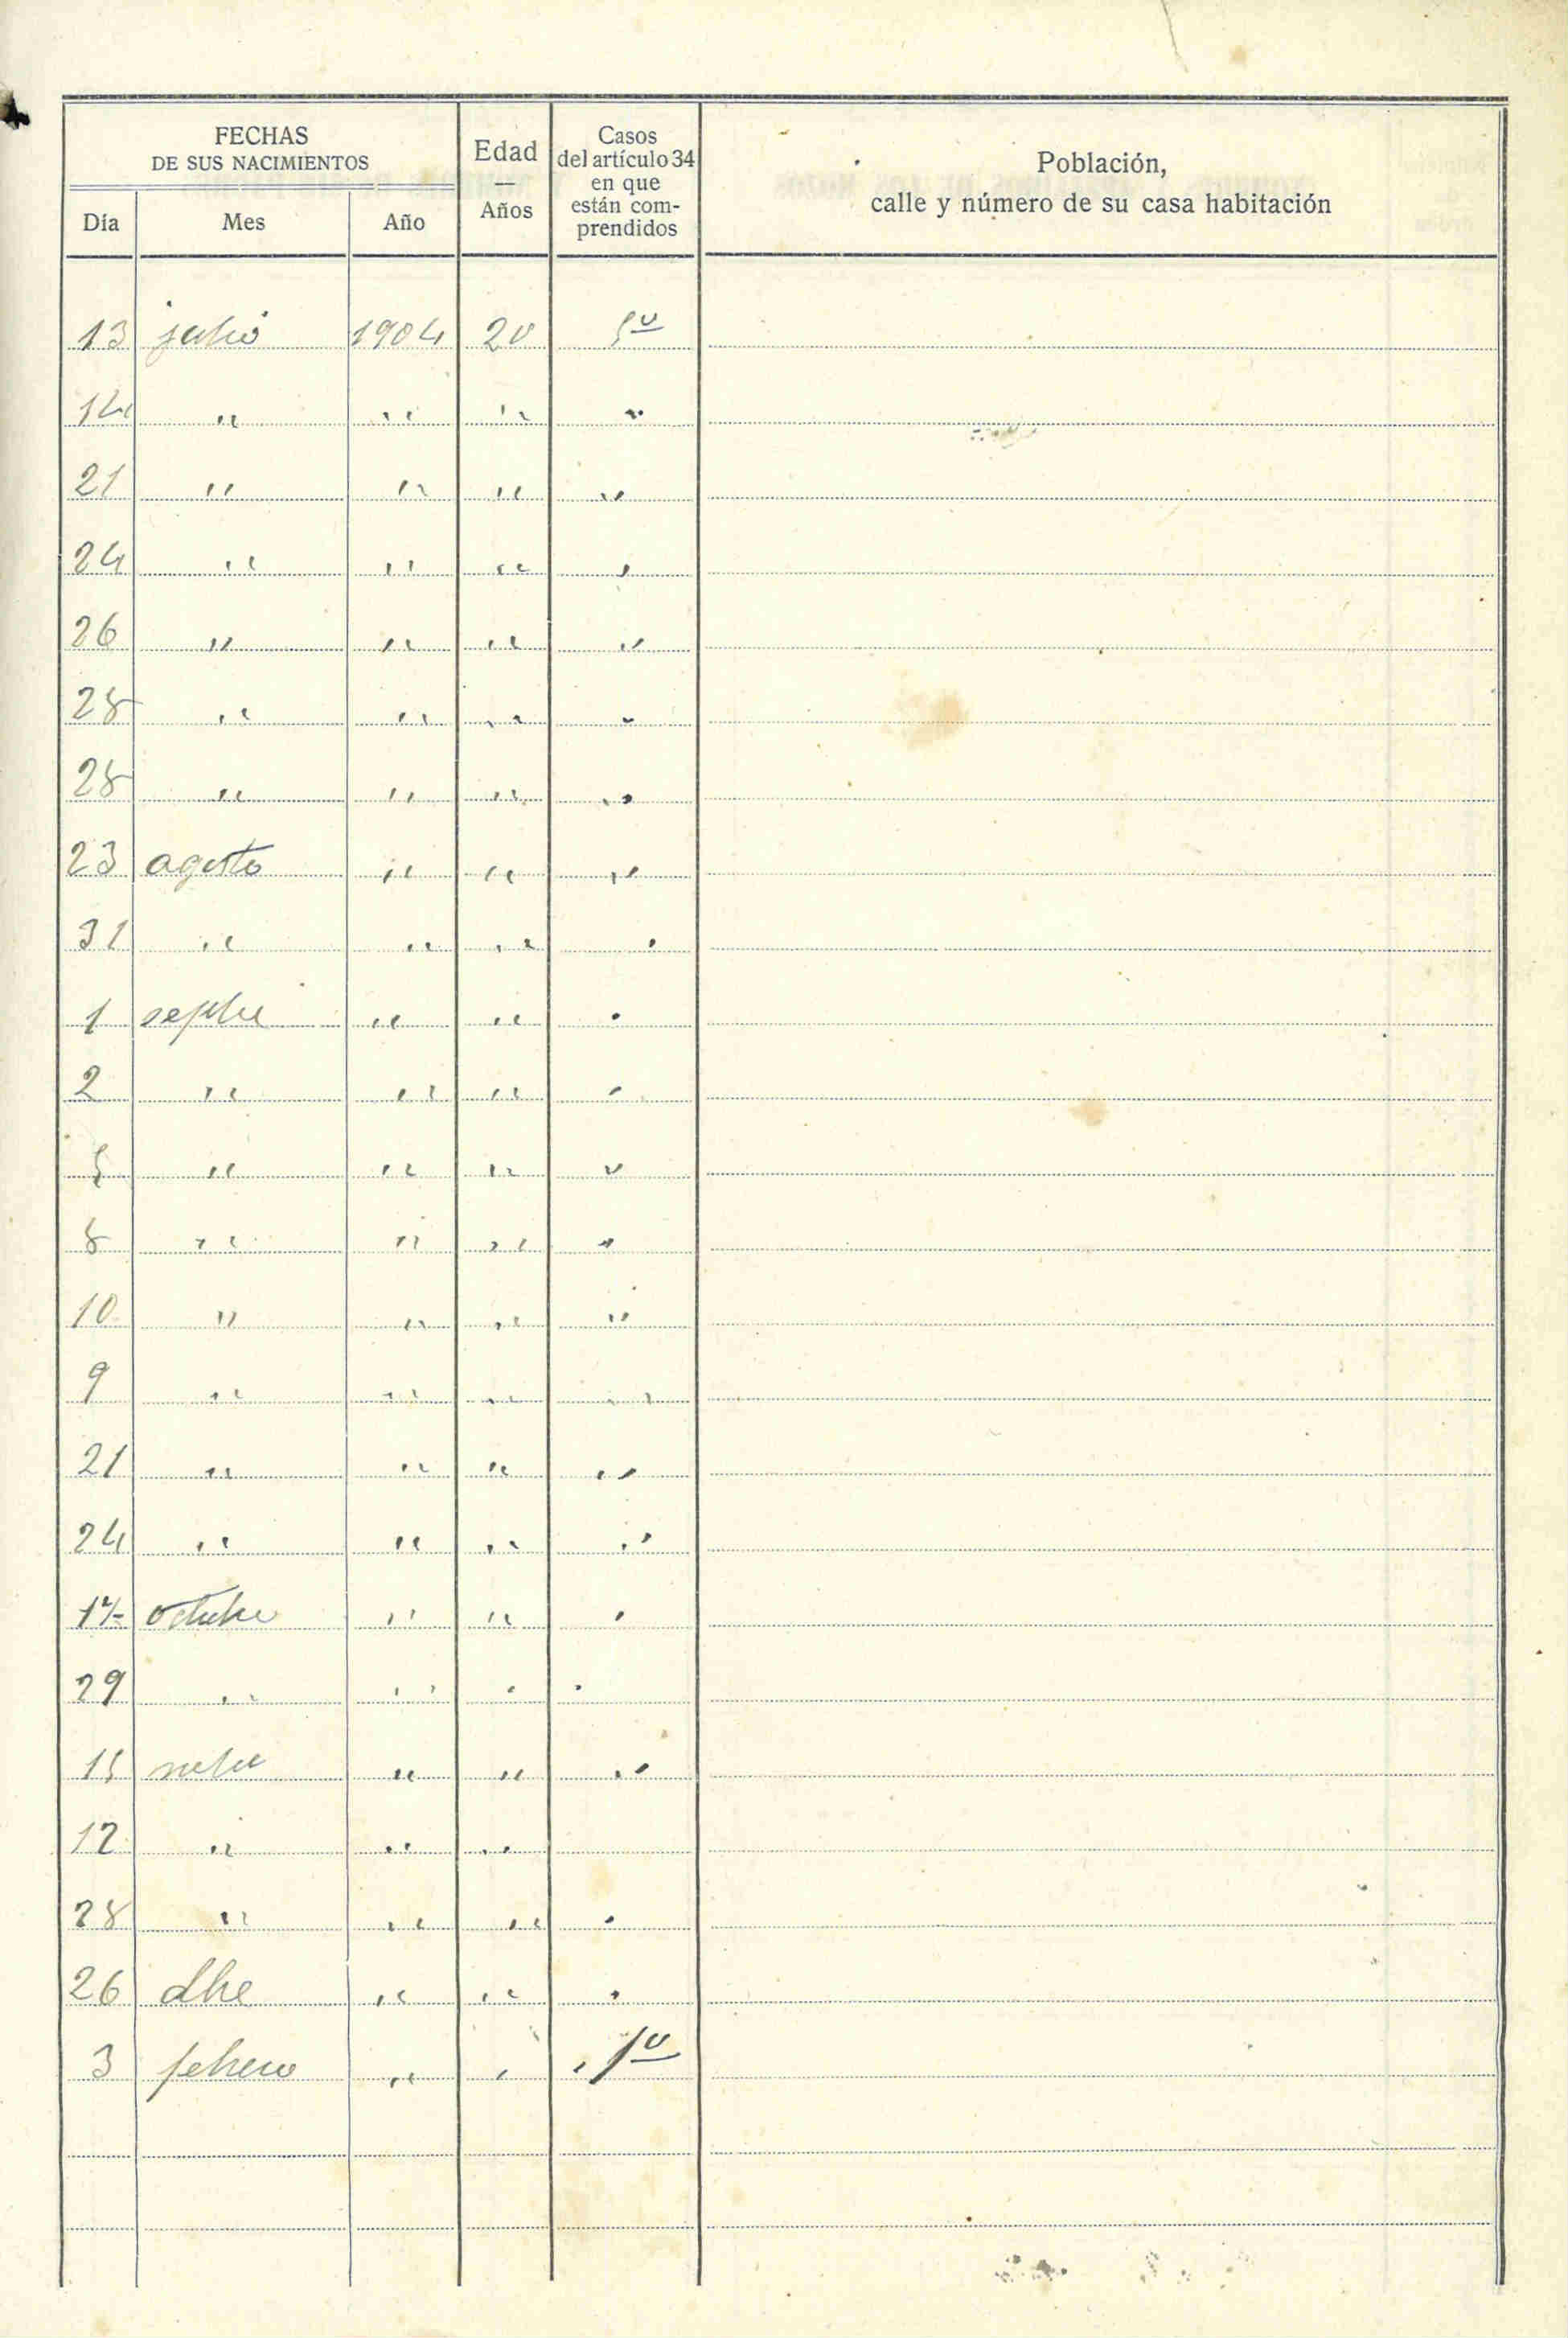 FECHAS
DE SUS NACIMIENTOS
Edad
—
Años
Casos
del artículo 34
en que
están com-
prendidos
Población,
calle y número de su casa habitación
Día Mes Año
13 julio 1904 20 5º
14 " " " "
21 " " " "
24 " " " "
26 " " " "
28 " " " "
28 " " " "
23 agosto " " "
31 " " " "
1 sepbre " " "
2 " " " "
5 " " " "
8 " " " "
10 " " " "
9 " " " "
21 " " " "
24 " " " "
17 octubre " " "
29 " " " "
15 nvbre " " "
12 " " "
28 " " " "
26 dbre " " "
3 febrero " " " 1º